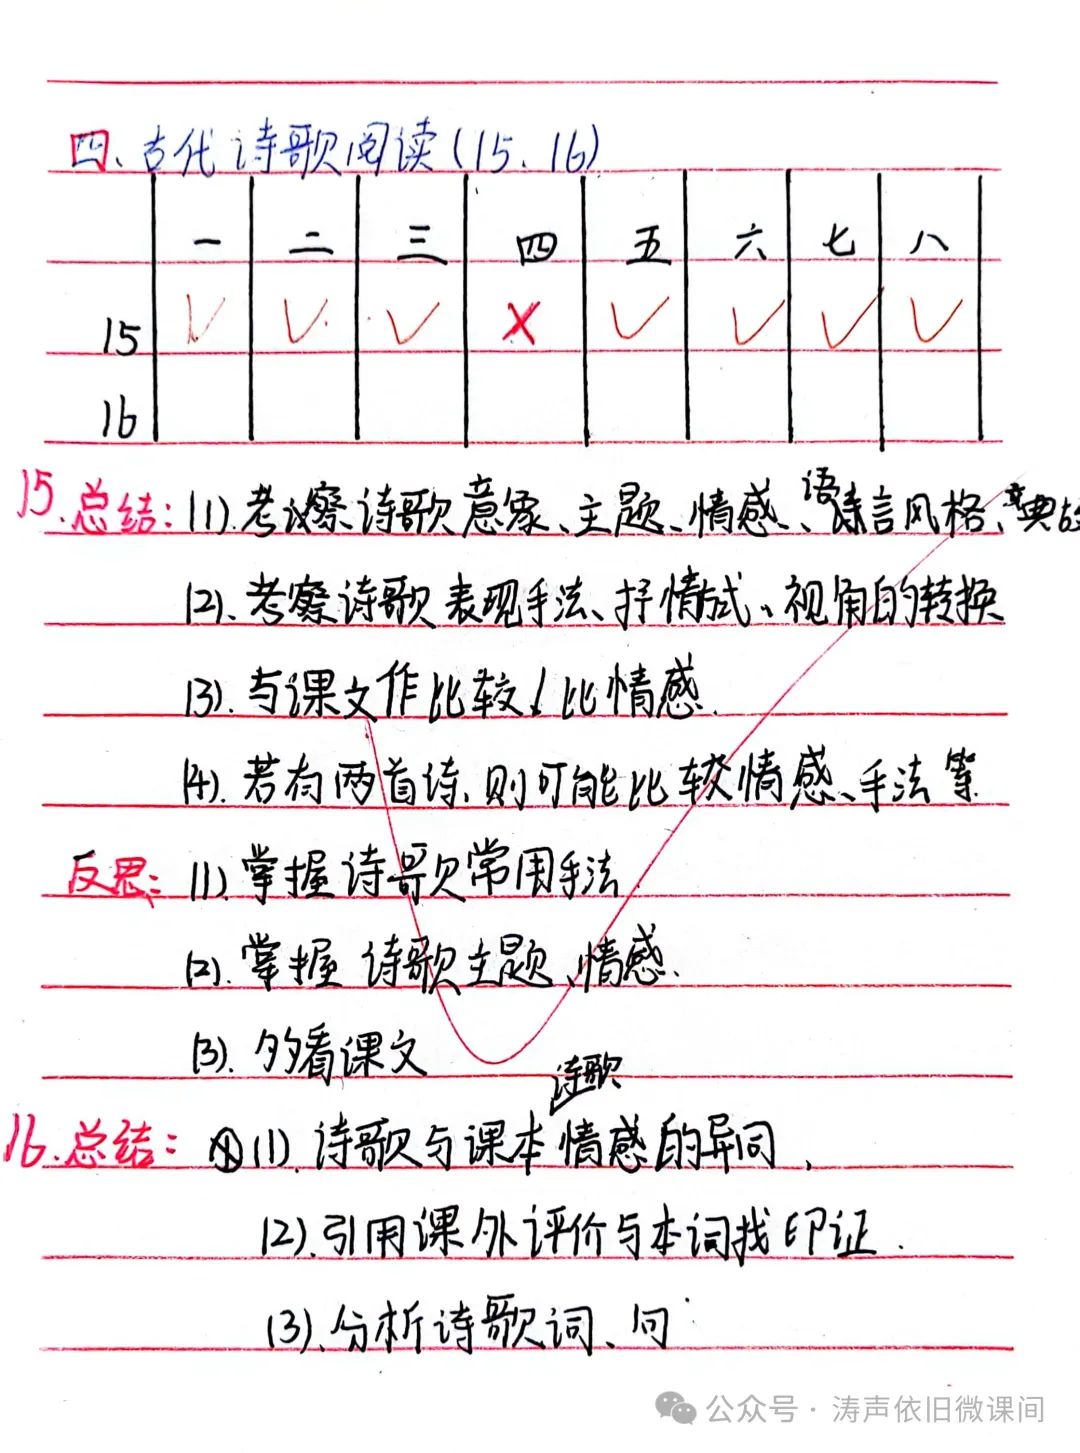 四、古代诗歌阅读(15、16)
一 二 三 四 五 六 七 八
15 ✓ ✓ ✓ ✗ ✓ ✓ ✓ ✓
16
15.总结:(1).考察诗歌意象、主题、情感、语言风格、典故
(2).考察诗歌表现手法、抒情式、视角的转换
(3).与课文作比较,比情感.
(4).若有两首诗,则可能比较情感、手法等.
反思:(1).掌握诗歌常用手法
(2).掌握诗歌主题、情感.
(3).多看课文
诗歌
16.总结:(1).诗歌与课本情感的异同,
(2).引用课外评价与本词找印证.
(3).分析诗歌词、句
公众号·涛声依旧微课间